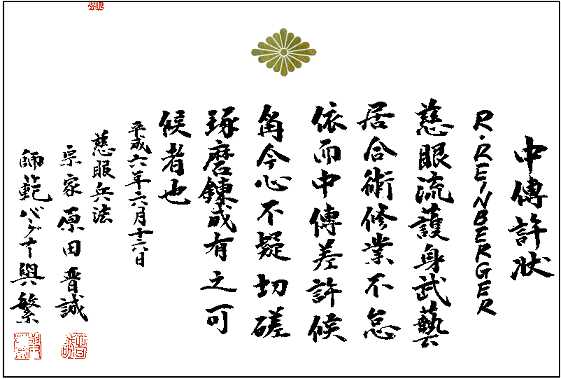 中傳許状
R.REINBERGER
慈眼流護身武藝
居合術修業不怠
依而中傳差許候
角今心不疑切磋
琢磨錬成有之可
候者也
平成六年六月二十六日
慈眼兵法
宗家 原田晋誠
師範バグナー與繁